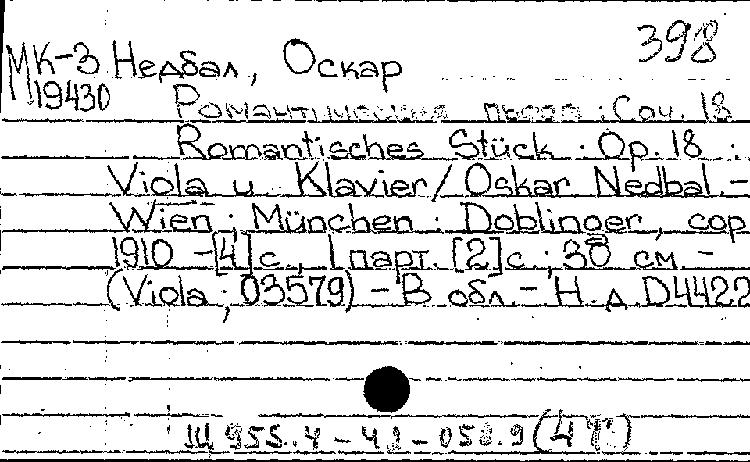 398
МК-3 Недбал, Оскар
19430 Романтическая пьеса : Соч. 18
Romantisches Stück : Op. 18 :
Viola u. Klavier / Oskar Nedbal. –
Wien ; München : Doblinger, cop
1910 – [4] с., 1 парт. [2] с. ; 30 см. –
(Viola ; 03579) – В обл. – Н. д. D4422
Щ 955.4 – 4